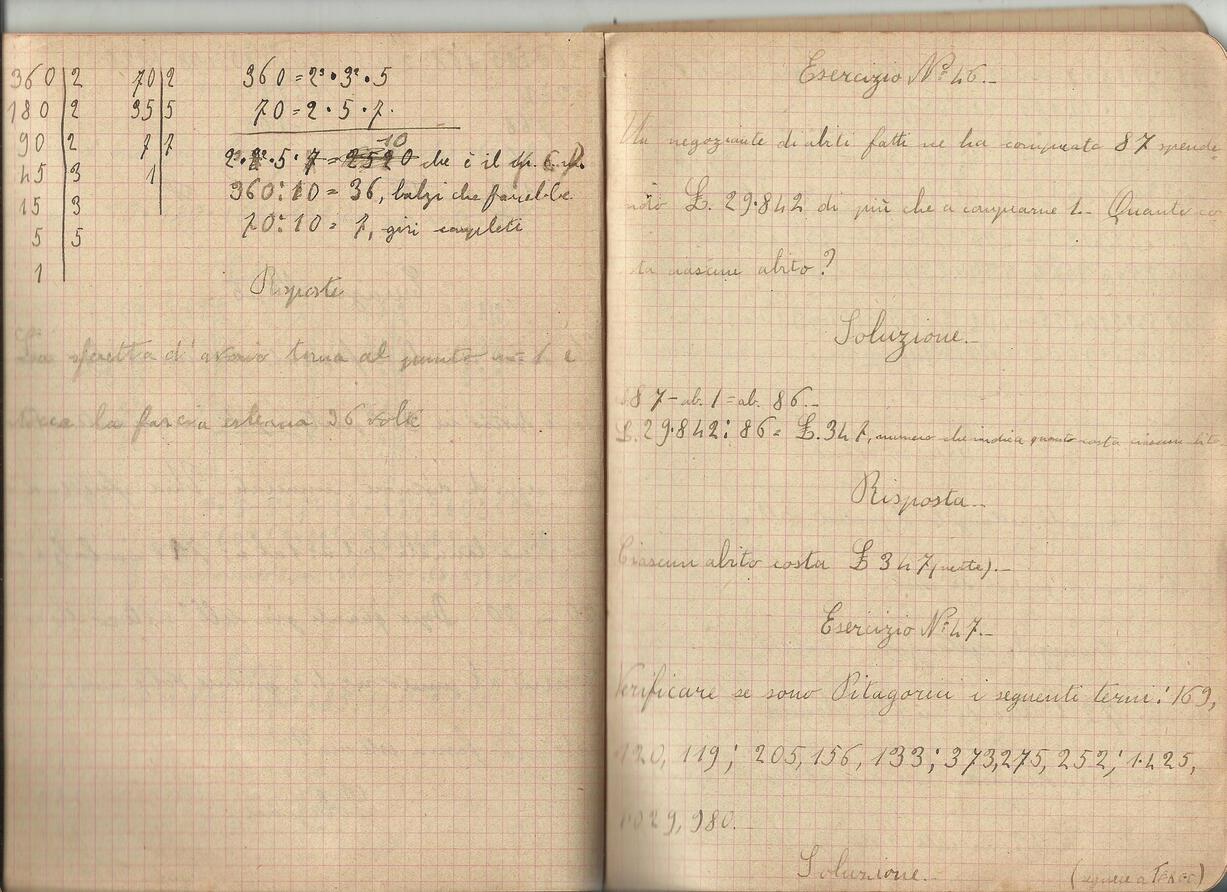 360|2 70|2 360=2³·3²·5
180|2 35|5 70=2·5·7.
90|2 7|7
10
2·5·7=2520 che è il
45|3 1
360:10=36, balzi che farebbe
15|3
70:10=7, giri completi
5|5
1
Risposte
La sferetta d'avorio torna al punto n= 1 e
tocca la fascia esterna 36 volte
Esercizio Nº 46.-
Un negoziante di abiti fatti ne ha comprata 87 spende
ndo £. 29.842 di più che a comprarne 1.- Quanto co
sta ciascun abito?
Soluzione.-
ab. 87-ab. 1=ab. 86.-
£. 29.842:86=£. 347, numero che indica quanto costa ciascun abito
Risposta.-
Ciascun abito costa £ 347
Esercizio Nº 47.-
Verificare se sono Pitagorici i seguenti terni: 169,
120, 119; 205, 156, 133; 373, 275, 252; 1.425,
1029, 980.-
Soluzione.- (segue a